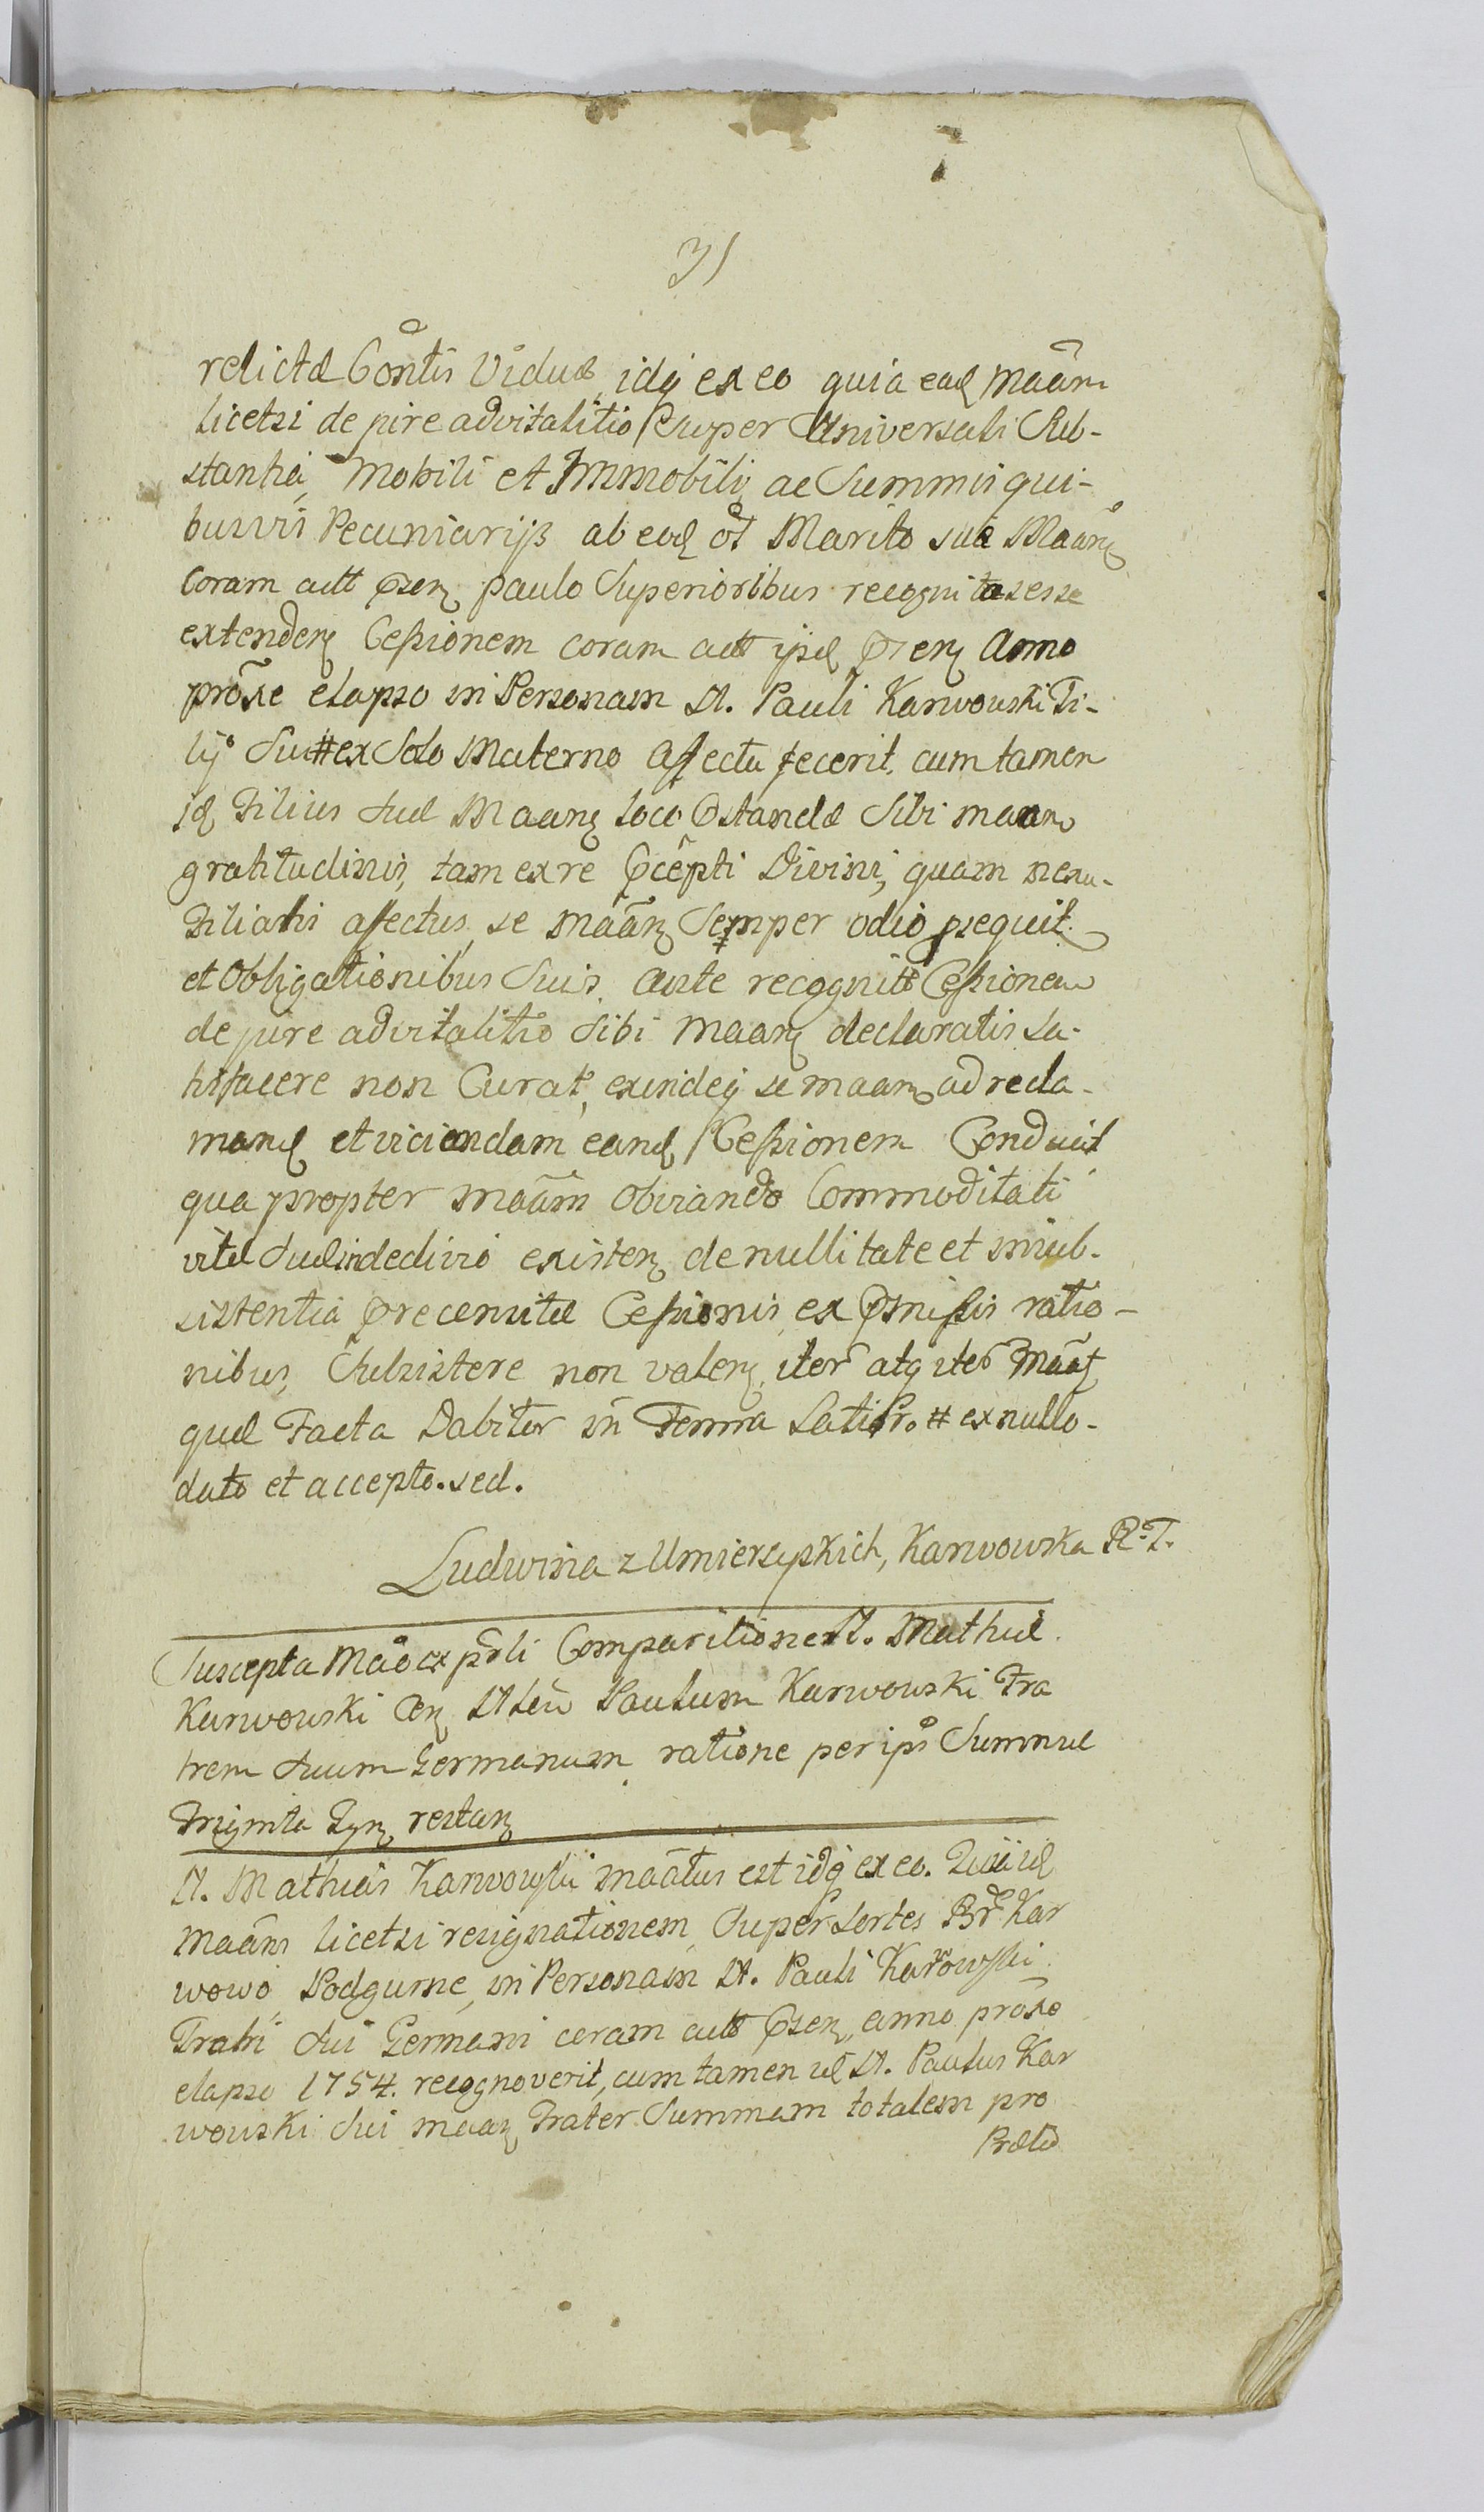 31
relictæ Contis Viduæ, idq ex eo quia ead maãm
licetsi de jure advitalitio Super Universali Sub-
stantia, Mobili et Immobili, ac Summis qui-
busvis Pecuniarijs ab eod ot Marito suæ Maane
Coram actt præsen paulo Superioribus recognita sese
extenden Cessionem coram actt ipsd præsen Anno
proxe elapso in Personam M. Pauli Karwowski Fi-
lij Sui # ex Solo Materno affectu fecerit, cum tamen
id Filius suæ Maane loco præstandæ Sibi maan
gratitudinis, tam ex re præcepti Divini, quam nexu
Filialis affectus, se maãn Semper odio psequit
et Obligationibus Suis, ante recognitt Cessionem
de jure advitalitio Sibi maan declaratis sa-
tisfacere non Curat, exindeq se maan ad recla-
mand et viciandam eand Cessionem Conduxit
qua propter maãm obviando Commoditati
vitæ suæ in declivio existen de nullitate et insub-
sistentia præcensitæ Cessionis ex præmissis ratio-
nibus, Subsistere non valen, iter atq iter maat
quæ Facta Dabitur in Forma Latiss. # ex nullo-
dato et accepto. sed.
Ludwina z Umierzyskich, Karwowska R. T.
Suscepta Mão ex pârli Comparitione M. Mathiæ
Karwowski Con M leu Paulum Karwowski Fra
trem suum Germanum, ratione per ips Summæ
Triginta Tyn restan
M. Mathias Karwowski maãtus est idq ex eo. Quia id
Maãns licetsi resignationem, Super sortes Br Kar
wowo, Podgurne, in Personam M. Pauli Karwowski
Fratri sui Germani coram actt præsen, anno proxo
elapso 1754. recognoverit, cum tamen id M. Paulus Kar
wowski sui maan Frater Summam totalem pro
Prætio